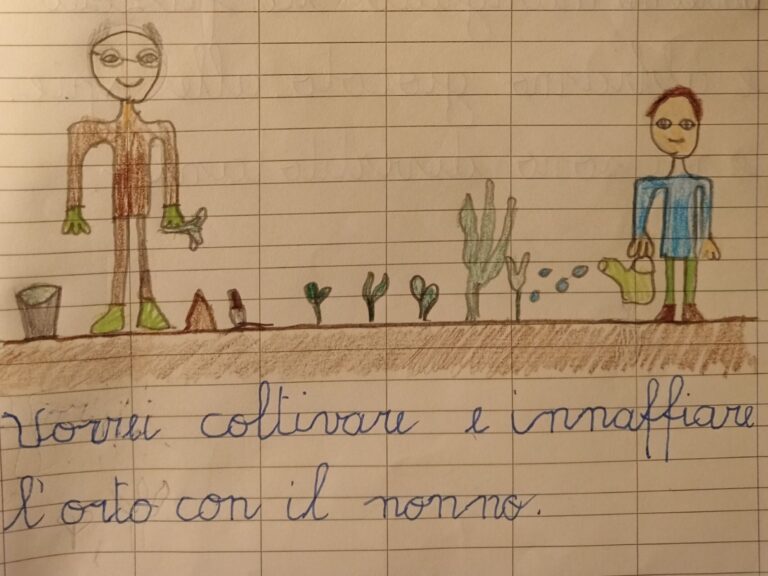 Vorrei coltivare e innaffiare
l'orto con il nonno.